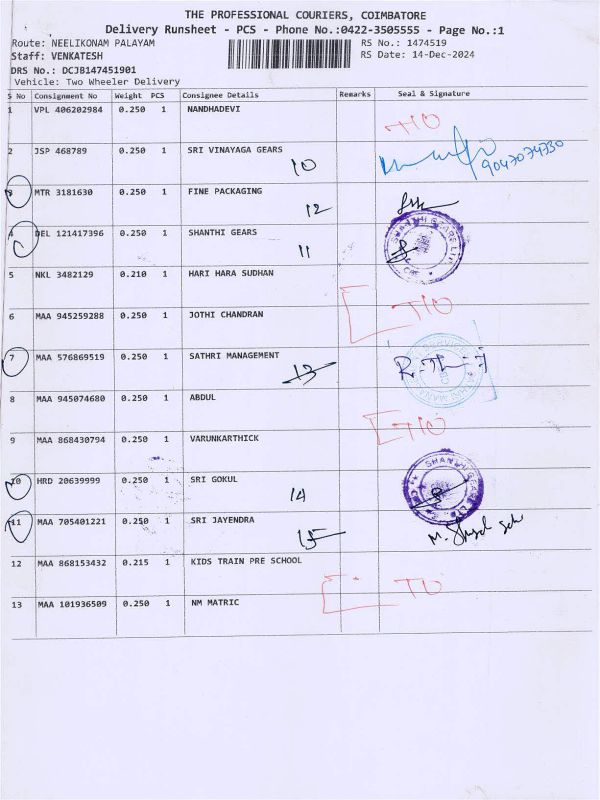 THE PROFESSIONAL COURIERS, COIMBATORE
Delivery Runsheet - PCS - Phone No.:0422-3505555 - Page No.:1
Route: NEELIKONAM PALAYAM RS No.: 1474519
Staff: VENKATESH RS Date: 14-Dec-2024
DRS No.: DCJB147451901
Vehicle: Two Wheeler Delivery
S No Consignment No Weight PCS Consignee Details Remarks Seal & Signature
1 VPL 406202984 0.250 1 NANDHADEVI
2 JSP 468789 0.250 1 SRI VINAYAGA GEARS 10 9047074330
3 MTR 3181630 0.250 1 FINE PACKAGING 12
4 DEL 121417396 0.250 1 SHANTHI GEARS 11 SHANTHI GEARS LTD
5 NKL 3482129 0.210 1 HARI HARA SUDHAN
6 MAA 945259288 0.250 1 JOTHI CHANDRAN
7 MAA 576869519 0.250 1 SATHRI MANAGEMENT 13
8 MAA 945074680 0.250 1 ABDUL
9 MAA 868430794 0.250 1 VARUNKARTHICK
10 HRD 20639999 0.250 1 SRI GOKUL 14 SHANTHI GEARS LTD
11 MAA 705401221 0.250 1 SRI JAYENDRA 15
12 MAA 868153432 0.215 1 KIDS TRAIN PRE SCHOOL
13 MAA 101936509 0.250 1 NM MATRIC